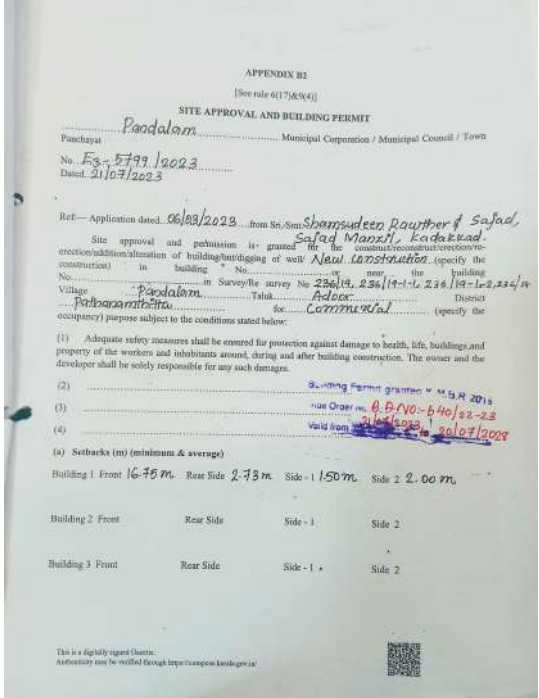 APPENDIX B2
[See rule 6(17)&9(4)]
SITE APPROVAL AND BUILDING PERMIT
Pandalam Municipal Corporation / Municipal Council / Town
Panchayat
No. E3-5799/2023
Dated. 21/07/2023
Ref:— Application dated. 06/03/2023 from Sri/Smt Shamsudeen Rawther & Sajad,
Sajad Manzil, Kadakkad.
Site approval and permission is granted for the construct/reconstruct/erection/re-
erection/addition/alteration of building/hut/digging of well/ New construction (specify the
construction) in building No. or near the building
No. in Survey/Re survey No 236/19, 236/19-1-1, 236/19-1-2, 236/19
Village Pandalam Taluk Adoor District
Pathanamthitta for Commercial (specify the
occupancy) purpose subject to the conditions stated below:
(1) Adequate safety measures shall be ensured for protection against damage to health, life, buildings,and
property of the workers and inhabitants around, during and after building construction. The owner and the
developer shall be solely responsible for any such damages.
(2) Building Permit granted
(3) Order no. B.A NO:- 640/22-23
(4) Valid from 21/07/2023 to 20/07/2028
(a) Setbacks (m) (minimum & average)
Building 1 Front 16.75 m Rear Side 2.73 m Side - 1 1.50 m Side 2 2.00 m
Building 2 Front Rear Side Side - 1 Side 2
Building 3 Front Rear Side Side - 1 Side 2
This is a digitally signed Gazette.
Authenticity may be verified through https://compose.kerala.gov.in/